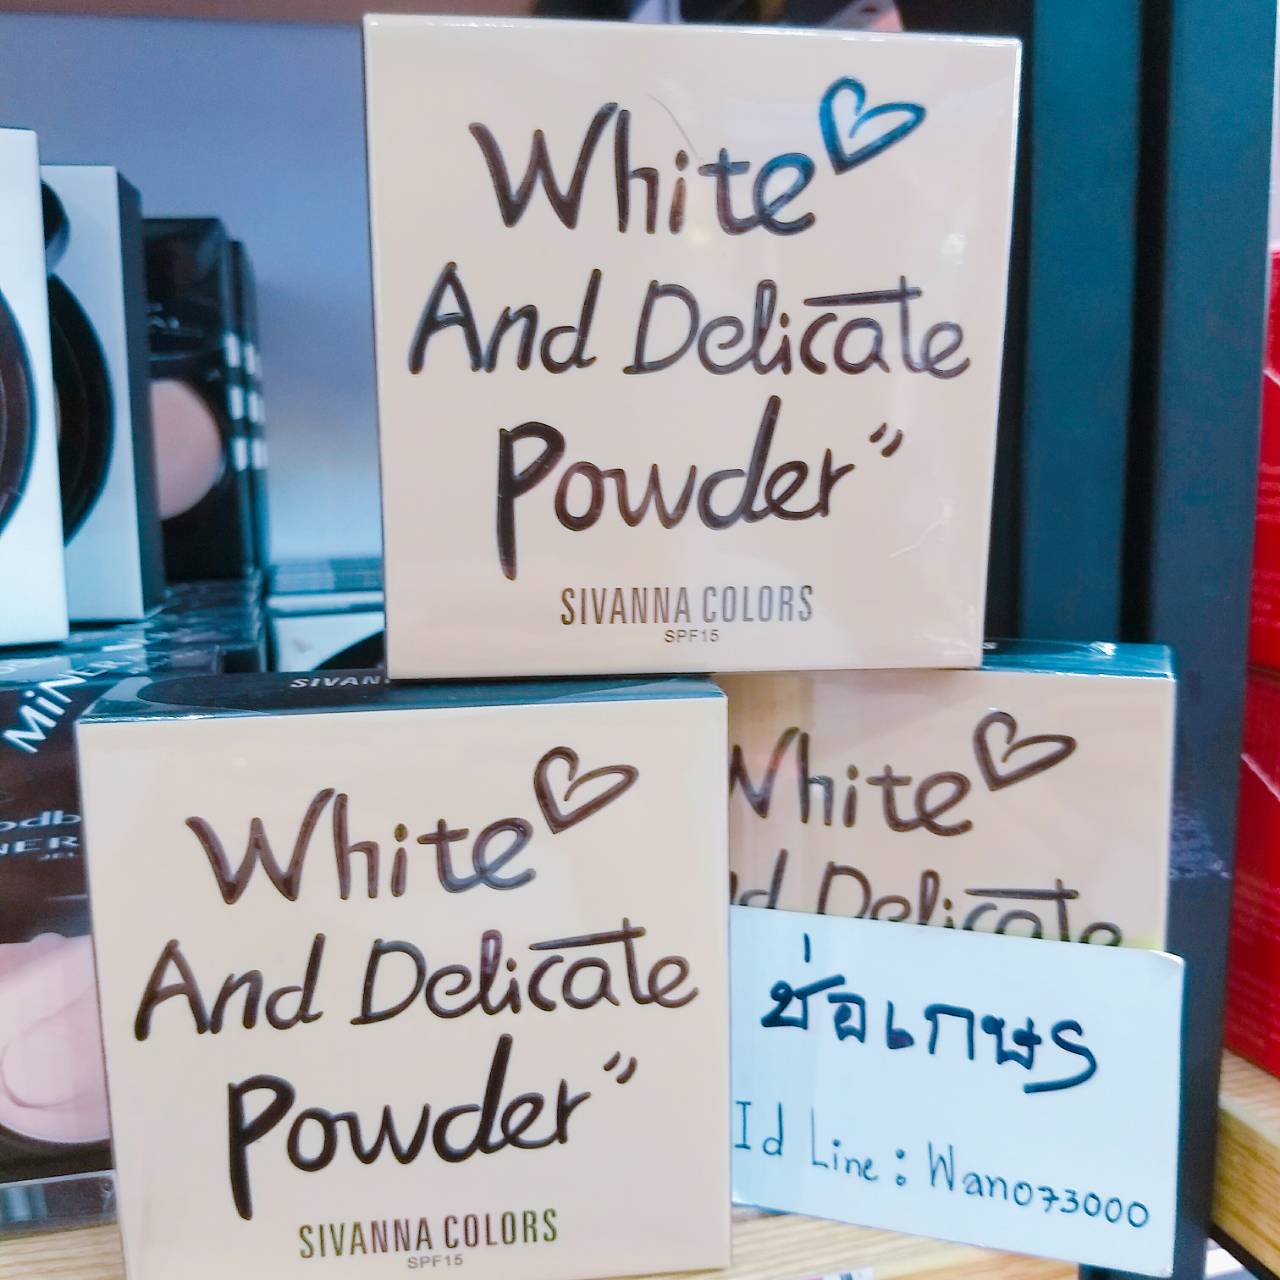 White
And Delicate
Powder"
SIVANNA COLORS
SPF15
SIVAN
MiNER
White
And Delicate
Powder"
SIVANNA COLORS
SPF15
White
Delicate
ช่อเกษร
Id Line : Wan073000